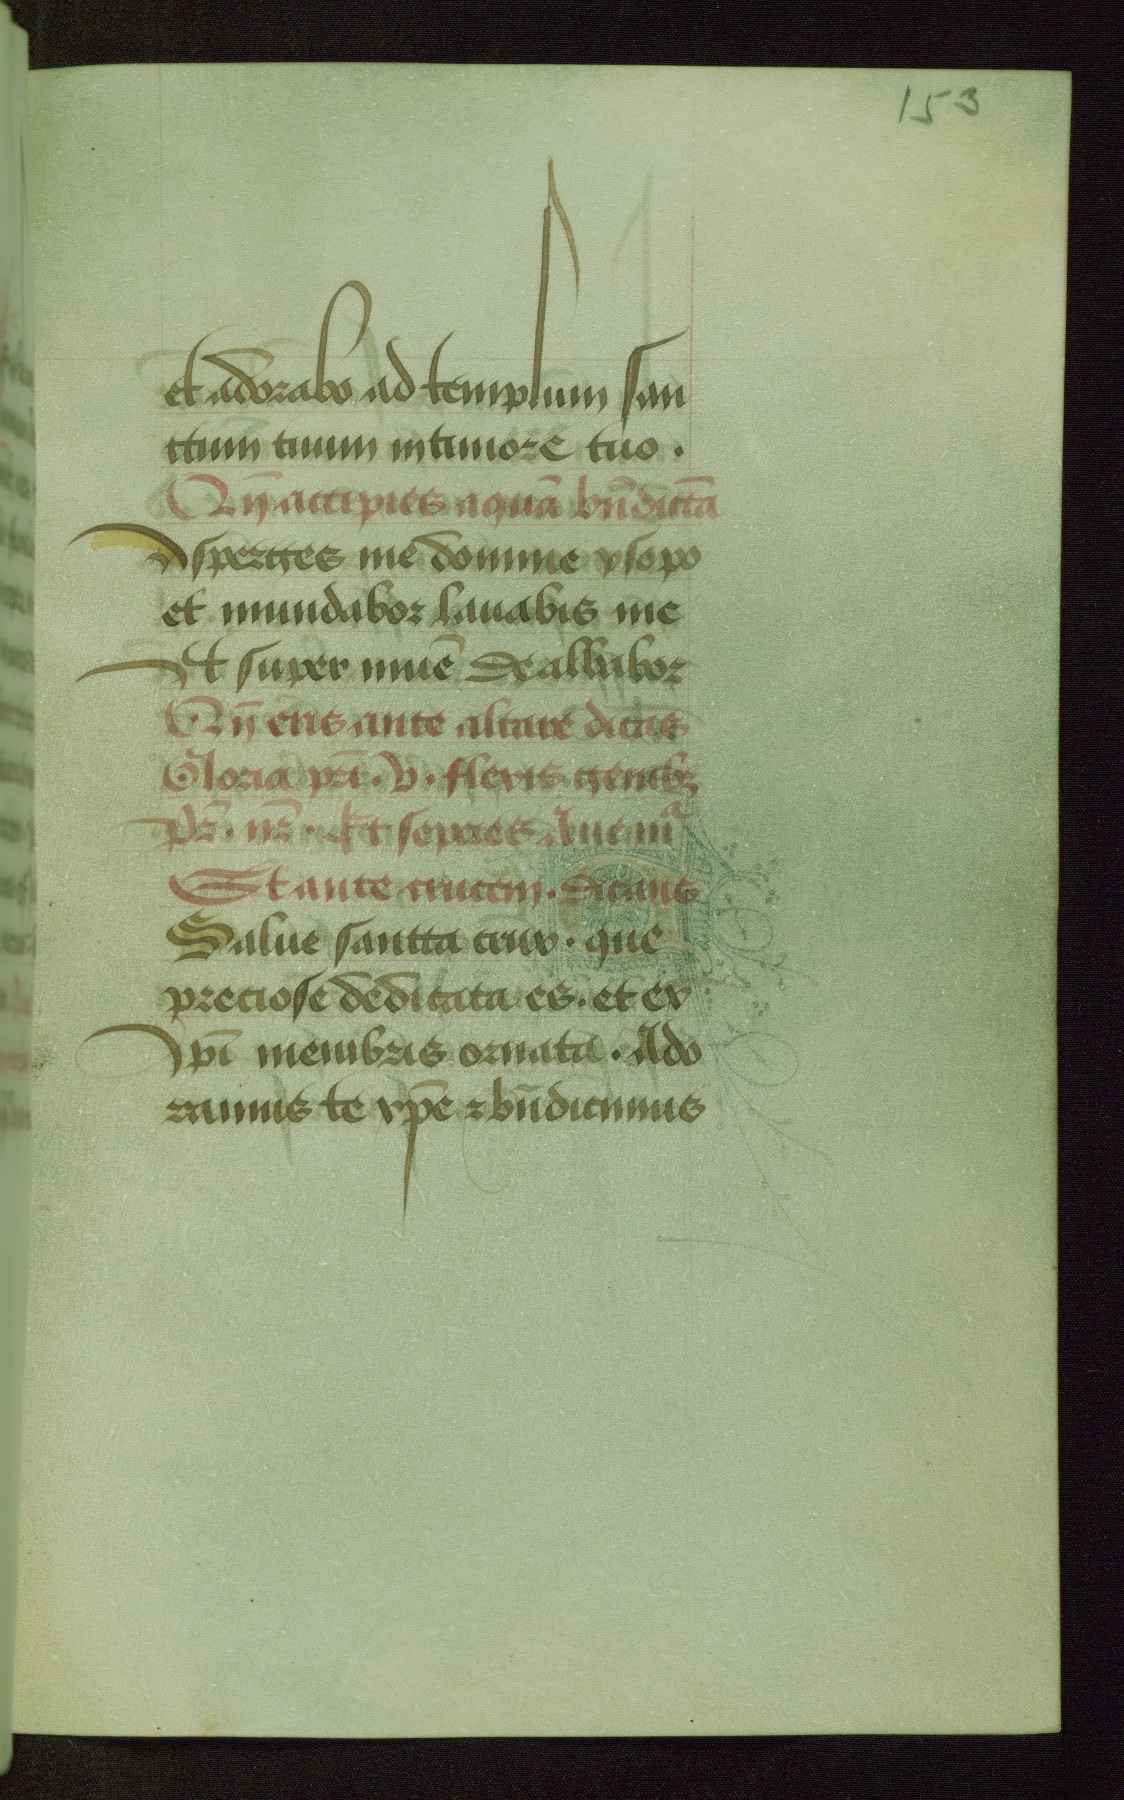 153
et adorabo ad templum san
ctum tuum in timore tuo .
Qn̄ accipies aquā bn̄dictā
Asperges me domine ysopo
et mundabor lauabis me
Et super niuē dealbabor
Qn̄ eris ante altare dicas
Gloria pr̄i . v . flexis genibꝫ
pr̄ . nr̄ . Et sepcies Aue mᵃ
St ante crucem . dicens
Salue sancta crux . que
preciose dedicata es . et ex
xp̄i membris ornata . Ado
ramus te xp̄e ⁊ bn̄dicimus